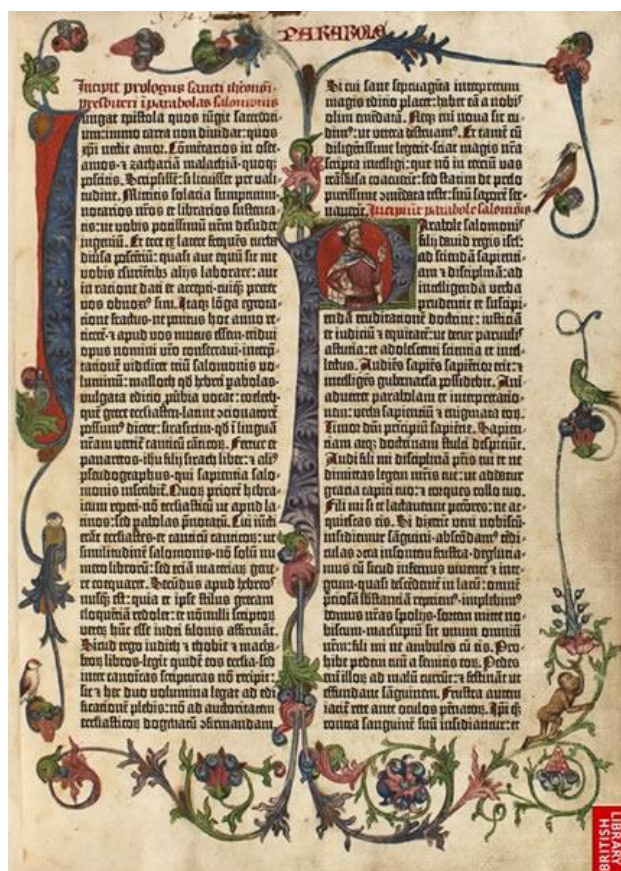 PARABOLE
Incipit prologus sancti iheronimi
presbiteri ī parabolas salomonis
Iungat epistola quos iūgit sacerdoti-
um: immo carta non diuidat: quos
xp̄i nectit amor. Cōmētarios in osee.
amos. ⁊ zachariā malachiā. quoqꝫ
poscitis. Scripsissē: si licuisset pre vali-
tudine. Mittitis solacia sumptuum.
notarios nr̄os et librarios sustenta-
tis: ut vobis potissimū nr̄m desudet
ingeniū. Et ecce ex latere frequēs turba
diūsa poscētiū: quasi aut equū sit me
vobis esuriētibꝰ alijs laborare: aut
in racione dati et accepti. cuiqꝫ preter
vos obnoxiꝰ sim. Itaqꝫ lōga egrota-
cione fractus. ne penitus hoc anno re-
ticerē. ⁊ apud vos mutus essem. tridui
opus nomini vr̄o consecraui. interp̄-
tationē videlicet triū salomonis vo-
luminū: masloth qd̄ hebrei ꝑabolas.
vulgata editio ꝓūbia vocat: coeleth.
quē grece ecclesiasten. latine ꝯcionatorē
possumꝰ dicere: sirasirim. qd̄ ī linguā
nr̄am vertit̄ canticū cāticoꝝ. Fertur et
panaretos. ihu filij sirach liber: ⁊ aliꝰ
pseudographus. qui sapientia salo-
monis inscribit̄. Quoꝝ priorē hebra-
icum reperi. nō ecclesiasticū ut apud la-
tinos: sed ꝑabolas p̄notatū. Cui iūcti
erāt ecclesiastes. et canticū canticoꝝ: ut
similitudinē salomonis. nō solū nu-
mero libroꝝ: sed eciā materiaꝝ gene-
re coequaret. Secūdus apud hebreos
nusqꝫ est: quia et ipse stilus grecam
eloquētiā redolet: et nōnulli scriptoꝝ
veteꝝ hūc esse iudei filonis affirmāt.
Sicud ergo iudith ⁊ thobie ⁊ macha-
beoꝝ libros. legit quidē eos ecclīa. sed
inter canoicas scripturas nō recipit:
sic ⁊ hec duo volumina legat ad edi-
ficationē plebis: nō ad auctoritatem
ecclesiasticoꝝ dogmatū ꝯfirmandam.
Si cui sane septuagīta interpretum
magis editio placet: habet eā a nobis
olim emēdatā. Neqꝫ enī noua sic cu-
dimꝰ: ut vetera destruamꝰ. Et tamē cū
diligētissime legerit. sciat magis nr̄a
scripta intelligi: que nō in terciū vas
trāsfusa coacuerīt: sed statim de prelo
purissime ꝯmēdata teste: suū saporē ser-
uauerīt. Incipiūt parabole salomōis
Parabole salomonis
filij dauid regis isrl̄:
ad sciendā sapienti-
am ⁊ disciplinā: ad
intelligenda verba
prudentie et suscipi-
endā eruditationē doctrine: iusticiā
et iudiciū ⁊ equitatē: ut detur paruulis
astutia: et adolescenti scientia et intel-
lectus. Audiēs sapiēs sapiētior erit: ⁊
intelligēs gubernacla possidebit. Ani-
aduertet parabolam et interpretatio-
nem: verba sapientiū ⁊ enigmata eoꝝ.
Timor dn̄i principiū sapiētie. Sapien-
tiam atqꝫ doctrinam stulti despiciūt.
Audi fili mi disciplinā pr̄is tui et ne
dimittas legem mr̄is tue: ut addatur
gracia capiti tuo: ⁊ torques collo tuo.
Fili mi si te lactauerint pc̄cores: ne ac-
quiescas eis. Si dixerīt veni nobiscū.
insidiemur sāguini. abscōdamꝰ tēdi-
culas ꝯtra insontem frustra. deglutia-
mus eū sicud infernus viuentē ⁊ inte-
grum. quasi descēdentē in lacū: omnē
p̄ciosā sb̄stantiā reperiemꝰ. implebimꝰ
domus nr̄as spolijs. sortem mitte no-
biscum. marsupiū sit vnum omniū
nr̄m: fili mi ne ambules cū eis. Pro-
hibe pedem tuū a semitis eoꝝ. Pedes
enī illoꝝ ad malū currūt: ⁊ festināt ut
effundant sāguinem. Frustra autem
iacit̄ rete ante oculos pēnatoꝝ. Ipi qꝫ
contra sanguinē suū insidiantur: et
BRITISH
LIBRARY